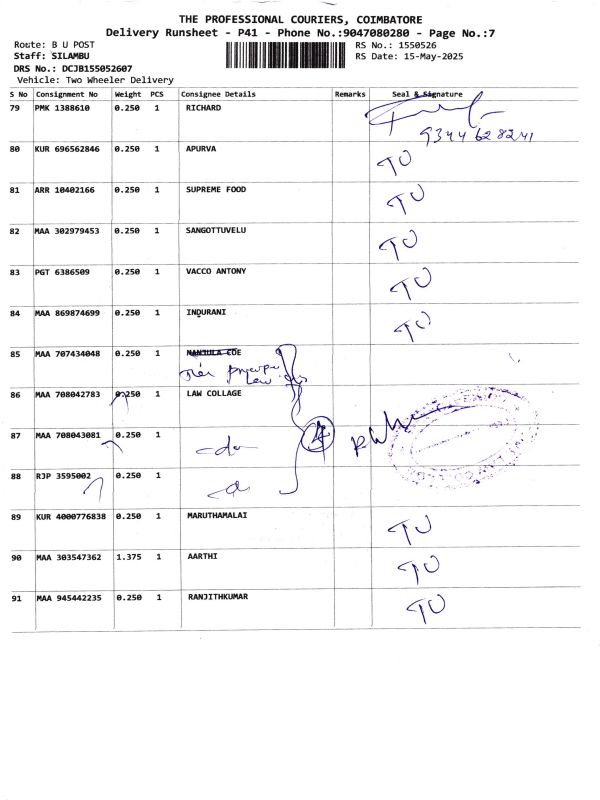 THE PROFESSIONAL COURIERS, COIMBATORE
Delivery Runsheet - P41 - Phone No.:9047080280 - Page No.:7
Route: B U POST
RS No.: 1550526
Staff: SILAMBU
RS Date: 15-May-2025
DRS No.: DCJB155052607
Vehicle: Two Wheeler Delivery
S No Consignment No Weight PCS Consignee Details Remarks Seal & Signature
79 PMK 1388610 0.250 1 RICHARD
9344628241
80 KUR 696562846 0.250 1 APURVA TU
81 ARR 10402166 0.250 1 SUPREME FOOD TU
82 MAA 302979453 0.250 1 SANGOTTUVELU TU
83 PGT 6386509 0.250 1 VACCO ANTONY TU
84 MAA 869874699 0.250 1 INDURANI TU
85 MAA 707434048 0.250 1 MANJULA COE
Law
86 MAA 708042783 0.250 1 LAW COLLAGE
87 MAA 708043081 0.250 1 -do-
88 RJP 3595002 0.250 1
89 KUR 4000776838 0.250 1 MARUTHAMALAI TU
90 MAA 303547362 1.375 1 AARTHI TU
91 MAA 945442235 0.250 1 RANJITHKUMAR TU